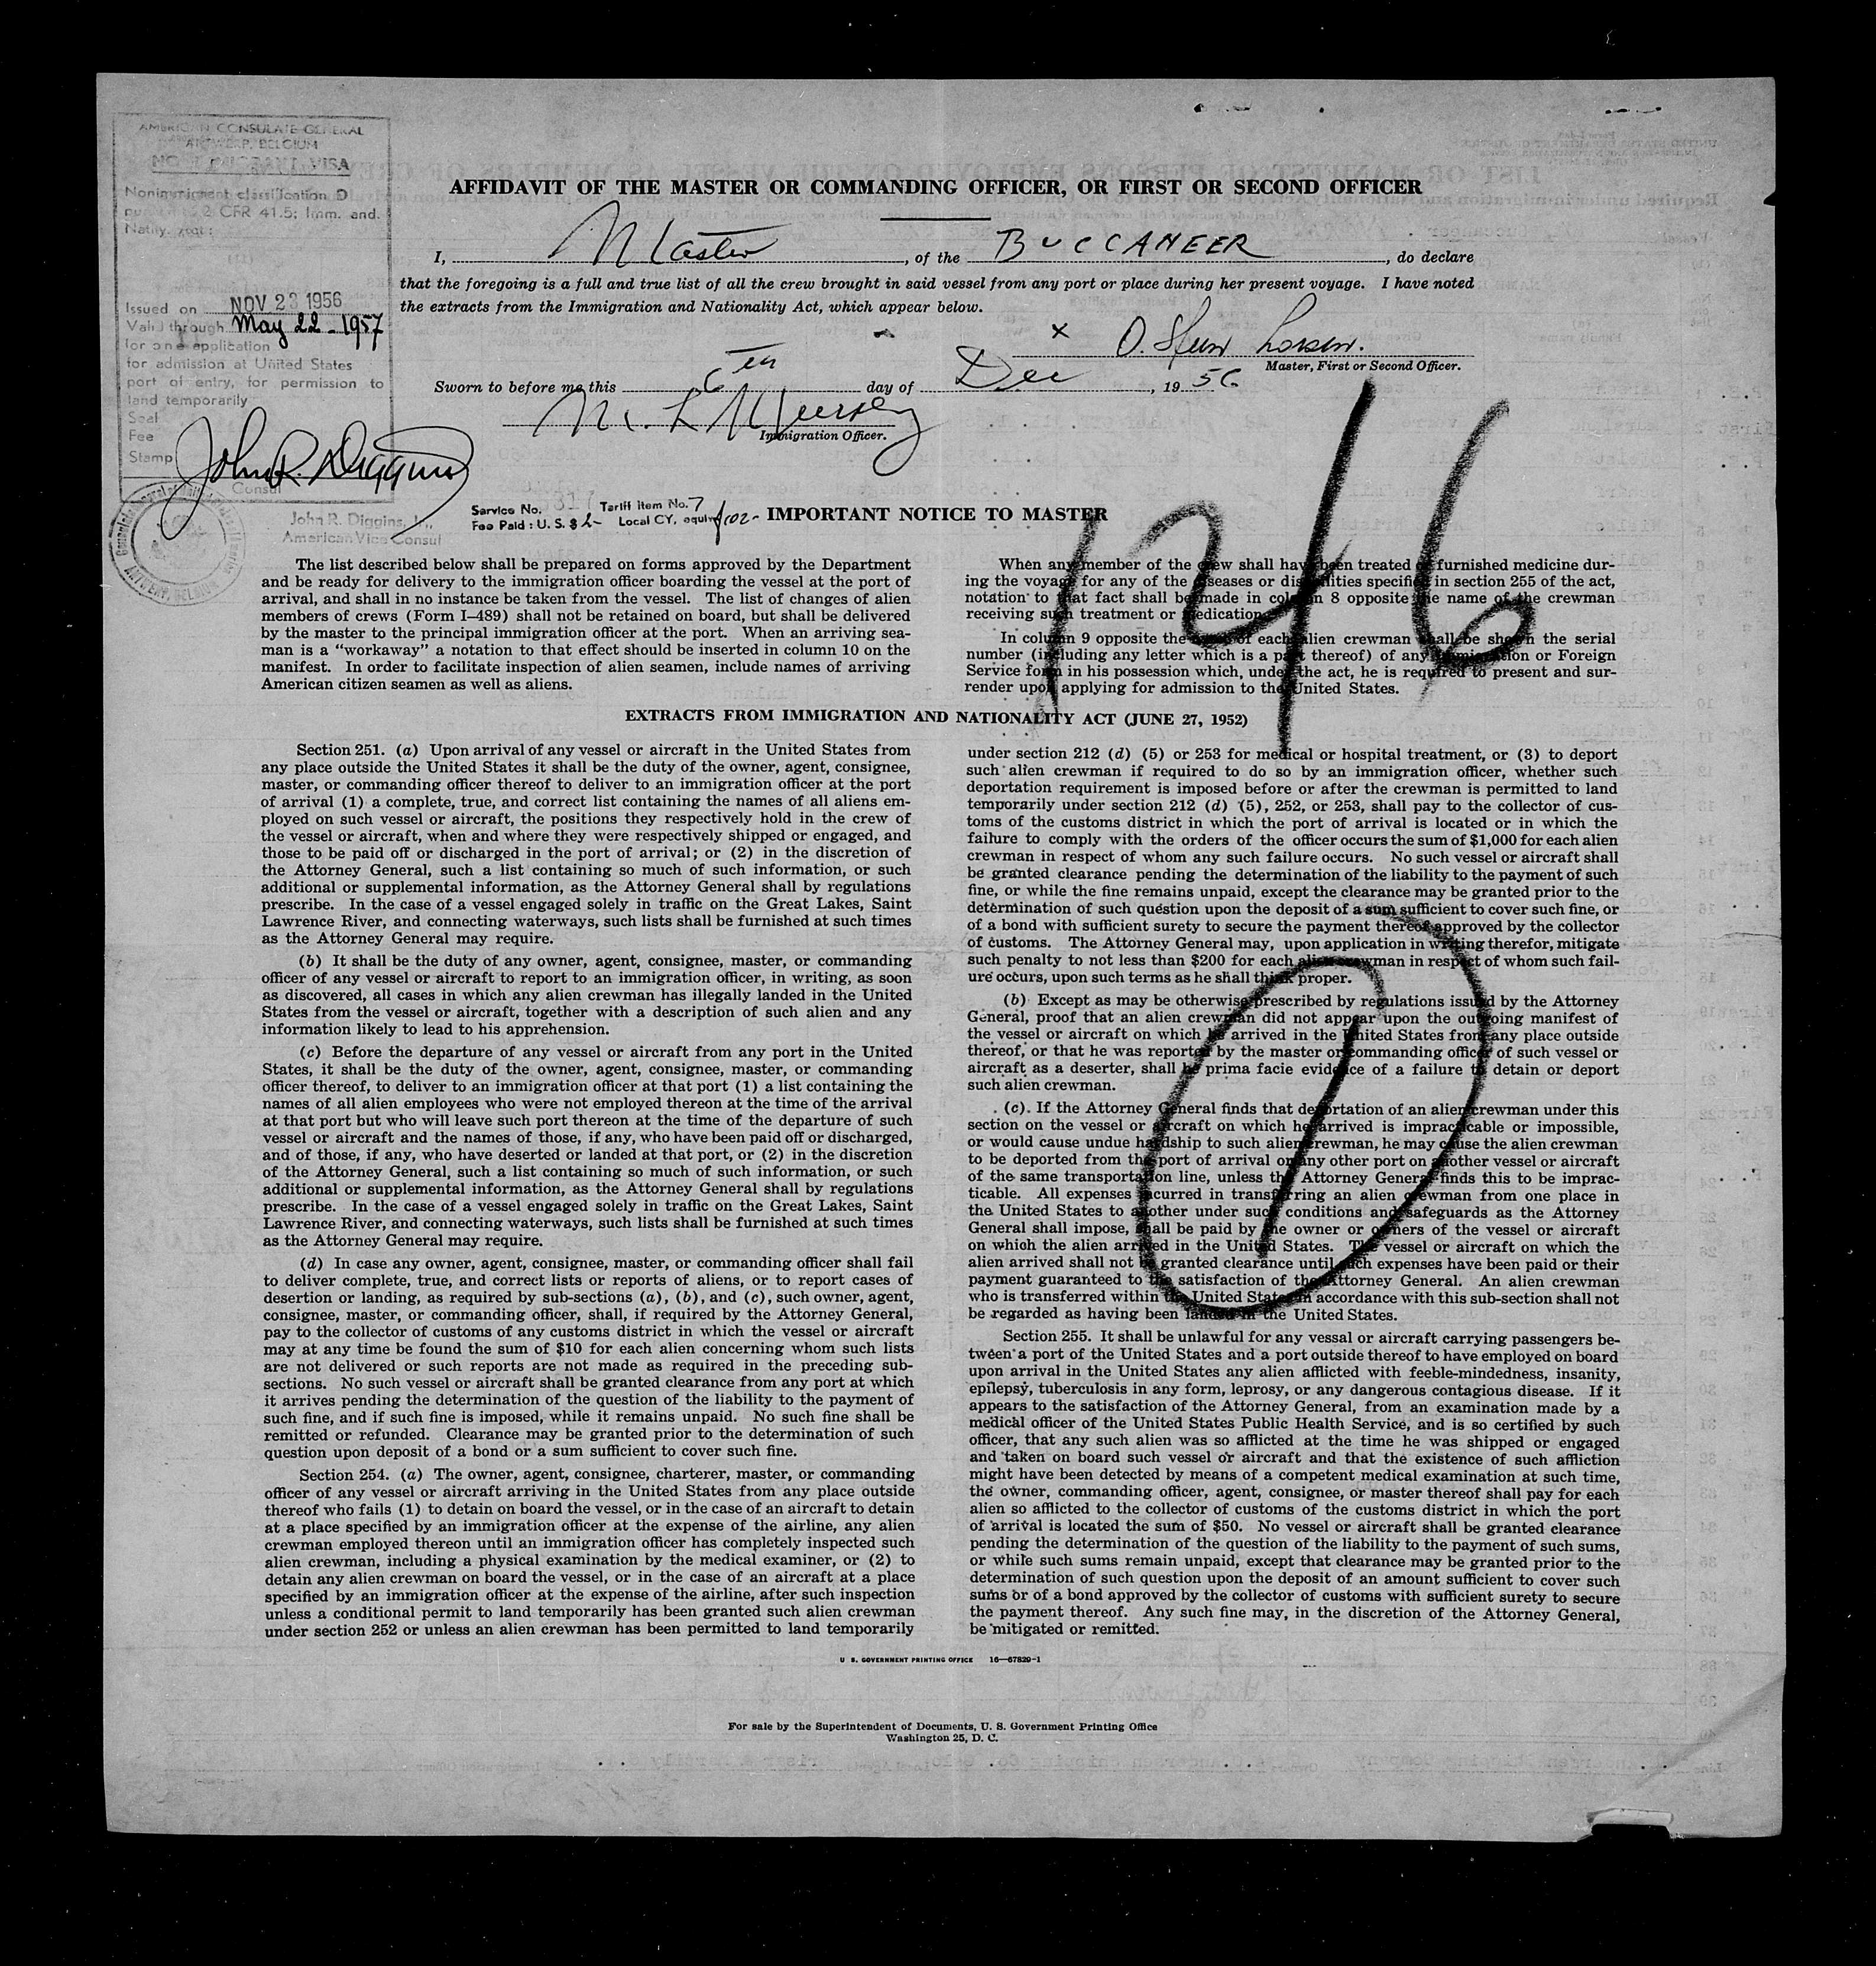 AMERICAN CONSULATE GENERAL
ANTWERP, BELGIUM
VISA
Nonimmigrant classification D
22 CFR 41.5; Imm. and.
Natlty.
Issued on NOV 23 1956
Valid through May 22 - 1957
for one application
for admission at United States
port of entry, for permission to
land temporarily
Seal
Fee
Stamp
John R. Diggins
Consul
John R. Diggins, Jr.,
American Vice Consul
ANTWERP, BELGIUM
AFFIDAVIT OF THE MASTER OR COMMANDING OFFICER, OR FIRST OR SECOND OFFICER
I, Master, of the BUCCANEER, do declare
that the foregoing is a full and true list of all the crew brought in said vessel from any port or place during her present voyage. I have noted
the extracts from the Immigration and Nationality Act, which appear below.
x O.
Master, First or Second Officer.
Sworn to before me this 6th day of Dec, 1956
Immigration Officer.
Service No. Tariff Item No. 7
Fee Paid: U. S. $ 2- Local CY, equiv. 102-
IMPORTANT NOTICE TO MASTER
1246
The list described below shall be prepared on forms approved by the Department
and be ready for delivery to the immigration officer boarding the vessel at the port of
arrival, and shall in no instance be taken from the vessel. The list of changes of alien
members of crews (Form I–489) shall not be retained on board, but shall be delivered
by the master to the principal immigration officer at the port. When an arriving sea-
man is a “workaway” a notation to that effect should be inserted in column 10 on the
manifest. In order to facilitate inspection of alien seamen, include names of arriving
American citizen seamen as well as aliens.
When any member of the crew shall have been treated or furnished medicine dur-
ing the voyage for any of the diseases or disabilities specified in section 255 of the act,
notation to that fact shall be made in column 8 opposite the name of the crewman
receiving such treatment or medication.
In column 9 opposite the name of each alien crewman shall be shown the serial
number (including any letter which is a part thereof) of any immigration or Foreign
Service form in his possession which, under the act, he is required to present and sur-
render upon applying for admission to the United States.
EXTRACTS FROM IMMIGRATION AND NATIONALITY ACT (JUNE 27, 1952)
Section 251. (a) Upon arrival of any vessel or aircraft in the United States from
any place outside the United States it shall be the duty of the owner, agent, consignee,
master, or commanding officer thereof to deliver to an immigration officer at the port
of arrival (1) a complete, true, and correct list containing the names of all aliens em-
ployed on such vessel or aircraft, the positions they respectively hold in the crew of
the vessel or aircraft, when and where they were respectively shipped or engaged, and
those to be paid off or discharged in the port of arrival; or (2) in the discretion of
the Attorney General, such a list containing so much of such information, or such
additional or supplemental information, as the Attorney General shall by regulations
prescribe. In the case of a vessel engaged solely in traffic on the Great Lakes, Saint
Lawrence River, and connecting waterways, such lists shall be furnished at such times
as the Attorney General may require.
(b) It shall be the duty of any owner, agent, consignee, master, or commanding
officer of any vessel or aircraft to report to an immigration officer, in writing, as soon
as discovered, all cases in which any alien crewman has illegally landed in the United
States from the vessel or aircraft, together with a description of such alien and any
information likely to lead to his apprehension.
(c) Before the departure of any vessel or aircraft from any port in the United
States, it shall be the duty of the owner, agent, consignee, master, or commanding
officer thereof, to deliver to an immigration officer at that port (1) a list containing the
names of all alien employees who were not employed thereon at the time of the arrival
at that port but who will leave such port thereon at the time of the departure of such
vessel or aircraft and the names of those, if any, who have been paid off or discharged,
and of those, if any, who have deserted or landed at that port, or (2) in the discretion
of the Attorney General, such a list containing so much of such information, or such
additional or supplemental information, as the Attorney General shall by regulations
prescribe. In the case of a vessel engaged solely in traffic on the Great Lakes, Saint
Lawrence River, and connecting waterways, such lists shall be furnished at such times
as the Attorney General may require.
(d) In case any owner, agent, consignee, master, or commanding officer shall fail
to deliver complete, true, and correct lists or reports of aliens, or to report cases of
desertion or landing, as required by sub-sections (a), (b), and (c), such owner, agent,
consignee, master, or commanding officer, shall, if required by the Attorney General,
pay to the collector of customs of any customs district in which the vessel or aircraft
may at any time be found the sum of $10 for each alien concerning whom such lists
are not delivered or such reports are not made as required in the preceding sub-
sections. No such vessel or aircraft shall be granted clearance from any port at which
it arrives pending the determination of the question of the liability to the payment of
such fine, and if such fine is imposed, while it remains unpaid. No such fine shall be
remitted or refunded. Clearance may be granted prior to the determination of such
question upon deposit of a bond or a sum sufficient to cover such fine.
Section 254. (a) The owner, agent, consignee, charterer, master, or commanding
officer of any vessel or aircraft arriving in the United States from any place outside
thereof who fails (1) to detain on board the vessel, or in the case of an aircraft to detain
at a place specified by an immigration officer at the expense of the airline, any alien
crewman employed thereon until an immigration officer has completely inspected such
alien crewman, including a physical examination by the medical examiner, or (2) to
detain any alien crewman on board the vessel, or in the case of an aircraft at a place
specified by an immigration officer at the expense of the airline, after such inspection
unless a conditional permit to land temporarily has been granted such alien crewman
under section 252 or unless an alien crewman has been permitted to land temporarily
under section 212 (d) (5) or 253 for medical or hospital treatment, or (3) to deport
such alien crewman if required to do so by an immigration officer, whether such
deportation requirement is imposed before or after the crewman is permitted to land
temporarily under section 212 (d) (5), 252, or 253, shall pay to the collector of cus-
toms of the customs district in which the port of arrival is located or in which the
failure to comply with the orders of the officer occurs the sum of $1,000 for each alien
crewman in respect of whom any such failure occurs. No such vessel or aircraft shall
be granted clearance pending the determination of the liability to the payment of such
fine, or while the fine remains unpaid, except the clearance may be granted prior to the
determination of such question upon the deposit of a sum sufficient to cover such fine, or
of a bond with sufficient surety to secure the payment thereof approved by the collector
of customs. The Attorney General may, upon application in writing therefor, mitigate
such penalty to not less than $200 for each alien crewman in respect of whom such fail-
ure occurs, upon such terms as he shall think proper.
(b) Except as may be otherwise prescribed by regulations issued by the Attorney
General, proof that an alien crewman did not appear upon the outgoing manifest of
the vessel or aircraft on which he arrived in the United States from any place outside
thereof, or that he was reported by the master or commanding officer of such vessel or
aircraft as a deserter, shall be prima facie evidence of a failure to detain or deport
such alien crewman.
(c) If the Attorney General finds that deportation of an alien crewman under this
section on the vessel or aircraft on which he arrived is impracticable or impossible,
or would cause undue hardship to such alien crewman, he may cause the alien crewman
to be deported from the port of arrival or any other port on another vessel or aircraft
of the same transportation line, unless the Attorney General finds this to be imprac-
ticable. All expenses incurred in transferring an alien crewman from one place in
the United States to another under such conditions and safeguards as the Attorney
General shall impose, shall be paid by the owner or owners of the vessel or aircraft
on which the alien arrived in the United States. The vessel or aircraft on which the
alien arrived shall not be granted clearance until such expenses have been paid or their
payment guaranteed to the satisfaction of the Attorney General. An alien crewman
who is transferred within the United States in accordance with this sub-section shall not
be regarded as having been landed in the United States.
Section 255. It shall be unlawful for any vessal or aircraft carrying passengers be-
tween a port of the United States and a port outside thereof to have employed on board
upon arrival in the United States any alien afflicted with feeble-mindedness, insanity,
epilepsy, tuberculosis in any form, leprosy, or any dangerous contagious disease. If it
appears to the satisfaction of the Attorney General, from an examination made by a
medical officer of the United States Public Health Service, and is so certified by such
officer, that any such alien was so afflicted at the time he was shipped or engaged
and taken on board such vessel or aircraft and that the existence of such affliction
might have been detected by means of a competent medical examination at such time,
the owner, commanding officer, agent, consignee, or master thereof shall pay for each
alien so afflicted to the collector of customs of the customs district in which the port
of arrival is located the sum of $50. No vessel or aircraft shall be granted clearance
pending the determination of the question of the liability to the payment of such sums,
or while such sums remain unpaid, except that clearance may be granted prior to the
determination of such question upon the deposit of an amount sufficient to cover such
sums or of a bond approved by the collector of customs with sufficient surety to secure
the payment thereof. Any such fine may, in the discretion of the Attorney General,
be mitigated or remitted.
1
U. S. GOVERNMENT PRINTING OFFICE 16—67829-1
For sale by the Superintendent of Documents, U. S. Government Printing Office
Washington 25, D. C.